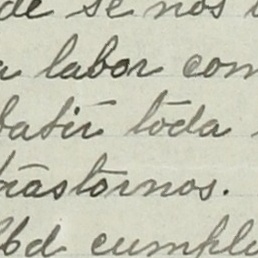 de se nos
a labor com
batir toda
trastornos.
bd cumpli